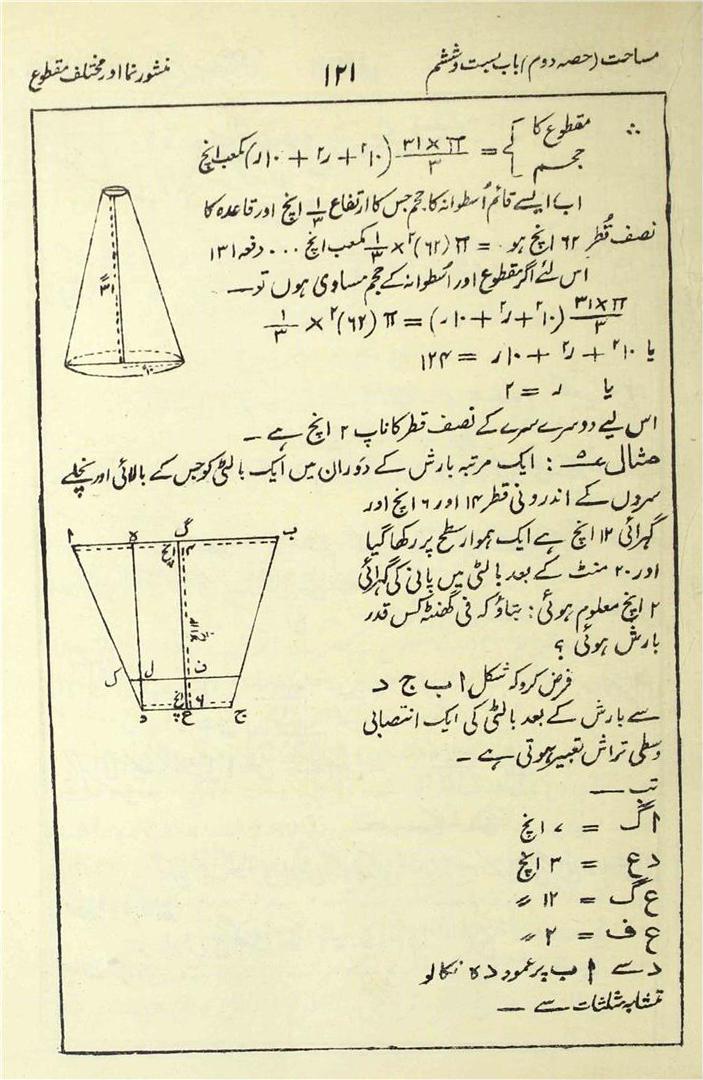 مساحت (حصہ دوم) باب بست و ششم
۱۲۱
منشور نما اور مختلف مقطوع
∴ مقطوع کا حجم } = π×۳۱/۳ (۱۰² + ر² + ۱۰ر) مکعب انچ
اب ایسے قائم اُسطوانہ کا حجم جس کا ارتفاع ۱/۳ انچ اور قاعدہ کا
نصف قُطر ۶۲ انچ ہو = π (۶۲)² × ۱/۳ مکعب انچ ... دفعہ ۱۳۱
اس لئے اگر مقطوع اور اُسطوانہ کے حجم مساوی ہوں تو —
π×۳۱/۳ (۱۰² + ر² + ۱۰ر) = π (۶۲)² × ۱/۳
یا ۱۰² + ر² + ۱۰ر = ۱۲۴
یا ر = ۲
اس لیے دوسرے سرے کے نصف قطر کا ناپ ۲ انچ ہے ۔
مثال ۵ : ایک مرتبہ بارش کے دَوران میں ایک بالٹی کو جس کے بالائی اور نچلے
سروں کے اندرونی قطر ۱۴ اور ۶ انچ اور
گہرائی ۱۲ انچ ہے ایک ہموار سطح پر رکھا گیا
اور ۲۰ منٹ کے بعد بالٹی میں پانی کی گہرائی
۲ انچ معلوم ہوئی : بتاؤ کہ فی گھنٹہ کس قدر
بارش ہوئی ؟
فرض کرو کہ شکل ا ب ج د
سے بارش کے بعد بالٹی کی ایک انتصابی
وسطی تراش تعبیر ہوتی ہے ۔
تب —
اگ = ۷ انچ
دع = ۳ انچ
ع گ = ۱۲ 〃
ع ف = ۲ 〃
د سے ا ب پر عمود دہ نکالو
متشابہ مثلثات سے —
۳۱
۱۰
ا
ہ
گ
ب
ک
ل
ف
د
ع
ج